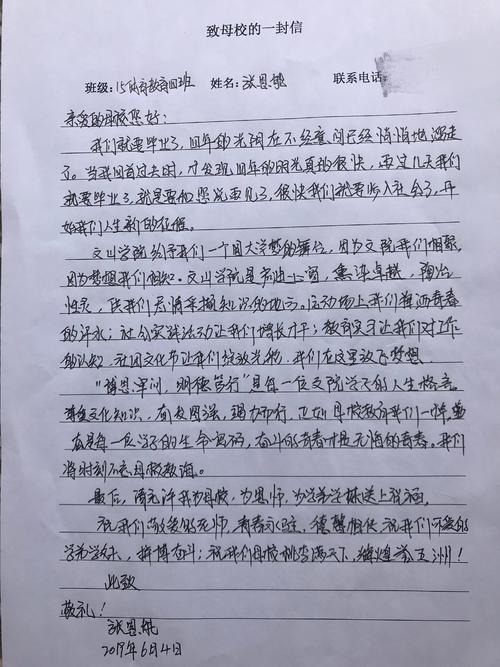 致母校的一封信
班级:15体育教育四班 姓名:张恩 联系电话
亲爱的母校您好:
我们就要毕业了,四年的光阴在不经意间已经悄悄地溜走
了。当我回首过去时,才发现四年的时光真的很快,再过几天我们
就要毕业了,就是要和您说再见了,很快我们就要步入社会了,开
始我们人生新的征程。
文山学院给予我们一个圆大学梦的舞台,因为文院我们相聚,
因为梦想我们相知。文山学院是 卓越,陶冶
性灵,供我们尽情采撷知识的地方。运动场上我们挥洒青春
的汗水;社会实践活动让我们增长才干;教育实习让我们对工作
的认知,社团文化节让我们绽放光彩,我们在这里放飞梦想。
“博思审问,明德笃行”是每一位文院学子的人生格言。
文化知识,奋发图强,努力前行,正如母校教育我们一样,
每一位学子的生命 ,奋斗的青春才是无悔的青春。我们
将时刻不忘母校教诲。
最后,请允许我为母校,为恩师,为学弟学妹送上祝福。
祝我们敬爱的老师,青春永驻,德馨相伴;祝我们可爱的
学弟学妹,拼搏奋斗;祝我们母校桃李满天下,辉煌誉五洲!
此致
敬礼!
张恩
2019年6月4日